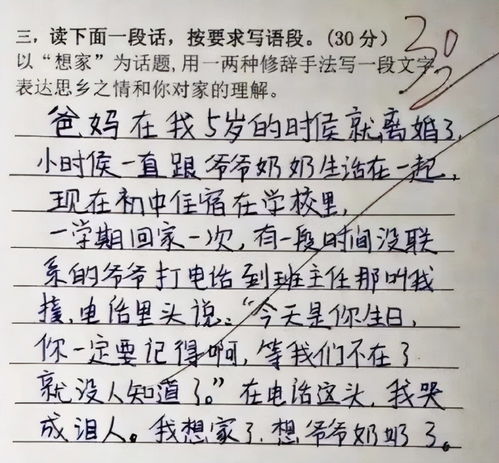 三，读下面一段话，按要求写语段。(30分)
以“想家”为话题,用一两种修辞手法写一段文字
表达思乡之情和你对家的理解。
30
爸妈在我5岁的时候就离婚了,
小时侯一直跟爷爷奶奶生活在一起,
现在初中住宿在学校里,
一学期回家一次,有一段时间没联
系的爷爷打电话到班主任那叫我
接,电话里头说:“今天是你生日,
你一定要记得啊,等我们不在了
就没人知道了。”在电话这头,我哭
成泪人。我想家了,想爷爷奶奶了。